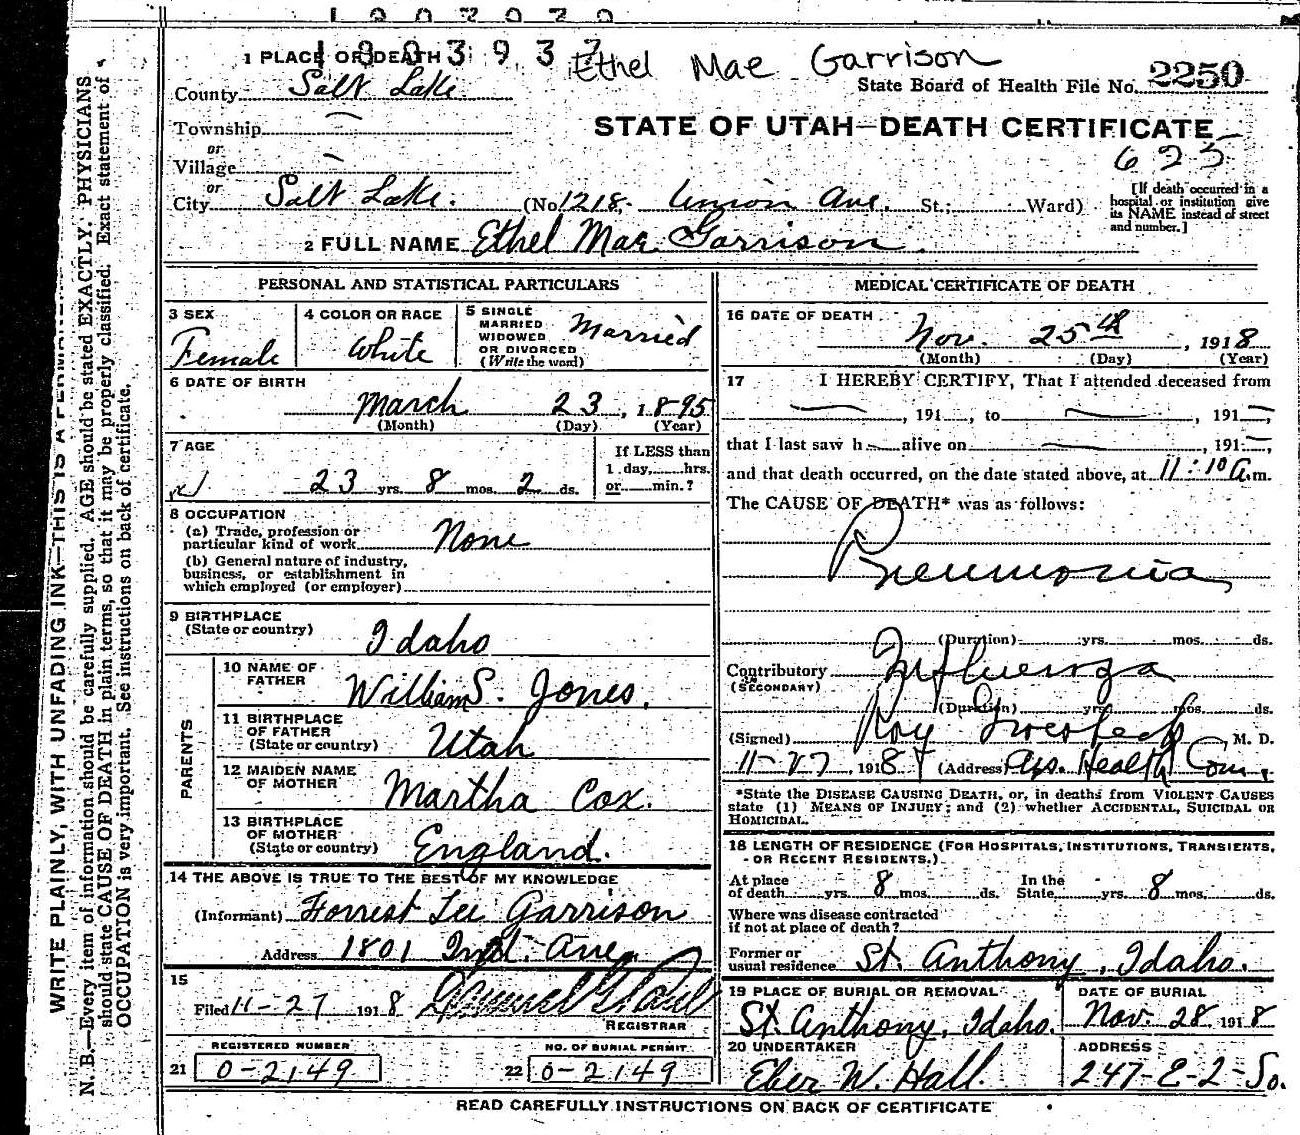 1003937
Ethel Mae Garrison
1 PLACE OF DEATH
County Salt Lake
State Board of Health File No. 2250
Township
or
STATE OF UTAH—DEATH CERTIFICATE
Village
or
City Salt Lake. (No. 1218 Union Ave. St.; Ward)
[If death occurred in a hospital or institution give its NAME instead of street and number.]
2 FULL NAME Ethel Mae Garrison
PERSONAL AND STATISTICAL PARTICULARS
3 SEX
Female
4 COLOR OR RACE
White
5 SINGLE
MARRIED
WIDOWED
OR DIVORCED
(Write the word)
Married
6 DATE OF BIRTH
March 23, 1895
(Month) (Day) (Year)
7 AGE
23 yrs. 8 mos. 2 ds.
If LESS than
1 day, hrs.
or min.?
8 OCCUPATION
(a) Trade, profession or
particular kind of work None
(b) General nature of industry,
business, or establishment in
which employed (or employer)
9 BIRTHPLACE
(State or country)
Idaho
PARENTS
10 NAME OF
FATHER
William S. Jones.
11 BIRTHPLACE
OF FATHER
(State or country)
Utah
12 MAIDEN NAME
OF MOTHER
Martha Cox.
13 BIRTHPLACE
OF MOTHER
(State or country)
England.
14 THE ABOVE IS TRUE TO THE BEST OF MY KNOWLEDGE
(Informant) Forrest Lee Garrison
Address 1801 Ave.
15
Filed 11-27 1918
REGISTRAR
REGISTERED NUMBER
21 0-2149
NO. OF BURIAL PERMIT
22 0-2149
MEDICAL CERTIFICATE OF DEATH
16 DATE OF DEATH
Nov. 25th, 1918
(Month) (Day) (Year)
17 I HEREBY CERTIFY, That I attended deceased from
, 191 , to , 191
that I last saw h alive on , 191 ,
and that death occurred, on the date stated above, at 11:10 a.m.
The CAUSE OF DEATH* was as follows:
Pneumonia
(Duration) yrs. mos. ds.
Contributory Influenza
(SECONDARY)
(Duration) yrs. mos. ds.
(Signed) Roy , M. D.
11-27, 1918 (Address) Health Com.
*State the DISEASE CAUSING DEATH, or, in deaths from VIOLENT CAUSES
state (1) MEANS OF INJURY; and (2) whether ACCIDENTAL, SUICIDAL OR
HOMICIDAL.
18 LENGTH OF RESIDENCE (FOR HOSPITALS, INSTITUTIONS, TRANSIENTS,
OR RECENT RESIDENTS.)
At place
of death yrs. 8 mos. ds.
In the
State yrs. 8 mos. ds.
Where was disease contracted
if not at place of death?
Former or
usual residence St. Anthony, Idaho.
19 PLACE OF BURIAL OR REMOVAL
St. Anthony, Idaho.
DATE OF BURIAL
Nov. 28 1918
20 UNDERTAKER
Eber W. Hall.
ADDRESS
247-E-2-So.
READ CAREFULLY INSTRUCTIONS ON BACK OF CERTIFICATE
N. B.—Every item of information should be carefully supplied. AGE should be stated EXACTLY. PHYSICIANS
should state CAUSE OF DEATH in plain terms, so that it may be properly classified. Exact statement of
OCCUPATION is very important. See instructions on back of certificate.
WRITE PLAINLY, WITH UNFADING INK—THIS IS A